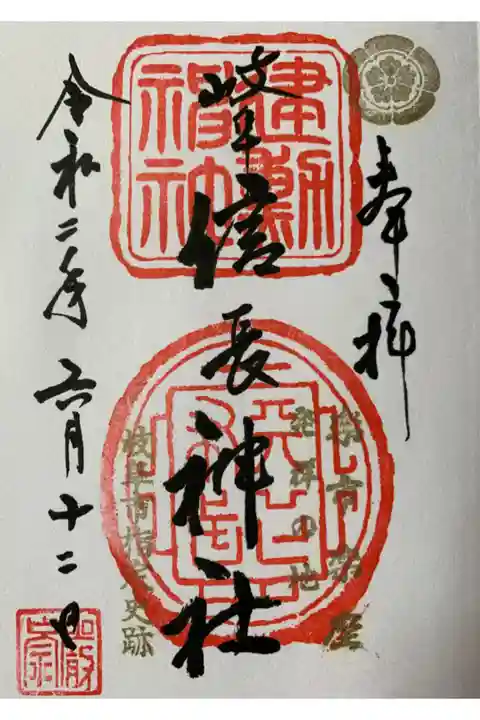 奉拝
建勲
神社
岐阜信長神社
楽市楽座
発祥の地
岐阜市指定史跡
令和二年六月十二日